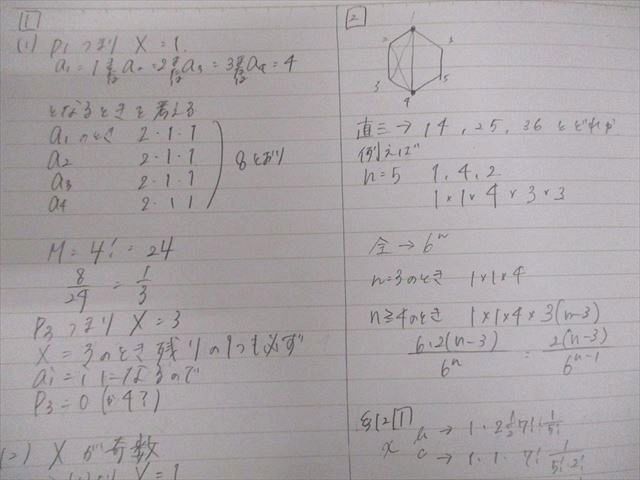 1
(1) P₁ つまり X = 1.
a₁ = 1 または a₂ = 2 または a₃ = 3 または a₄ = 4
となるときを考える
a₁ のとき 2・1・1
a₂ 2・1・1
a₃ 2・1・1
a₄ 2・1 1
8とおり
M = 4! = 24
8/24 = 1/3
P₃ つまり X = 3
X = 3のとき残りの1つも必ず
ai = i になるので
P₃ = 0 (か4?)
(2) X が奇数
X = 1
2
1
2
3
3
5
4
直三 → 14, 25, 36 とどれか
例えば
n = 5 1, 4, 2
1 × 1 × 4 × 3 × 3
全 → 6ⁿ
n = 3 のとき 1 × 1 × 4
n ≧ 4 のとき 1 × 1 × 4 × 3(n-3)
6・2(n-3)/6ⁿ = 2(n-3)/6ⁿ⁻¹
→ 1・2 1/2 7! 1/5!
x c → 1・1・7! 1/5!・2!